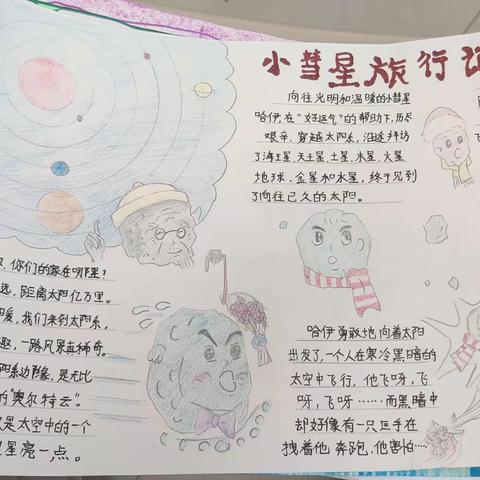 小彗星旅行记
向往光明和温暖的小彗星
哈伊在"好运气"的帮助下,历尽
艰辛,穿越太阳系,沿途拜访
了海王星、天王星、土星、木星、火星
地球、金星和水星,终于见到
了向往已久的太阳。
你们的家在哪里?
远,距离太阳亿万里。
暖,我们来到太阳系,
趣,一路风景真稀奇。
阳系边缘,是无比
的"奥尔特云"。
是太空中的一个
星亮一点。
哈伊勇敢地向着太阳
出发了,一个人在寒冷黑暗的
太空中飞行,他飞呀,飞
呀,飞呀……而黑暗中
却好像有一只巨手在
拽着他奔跑,他害怕……